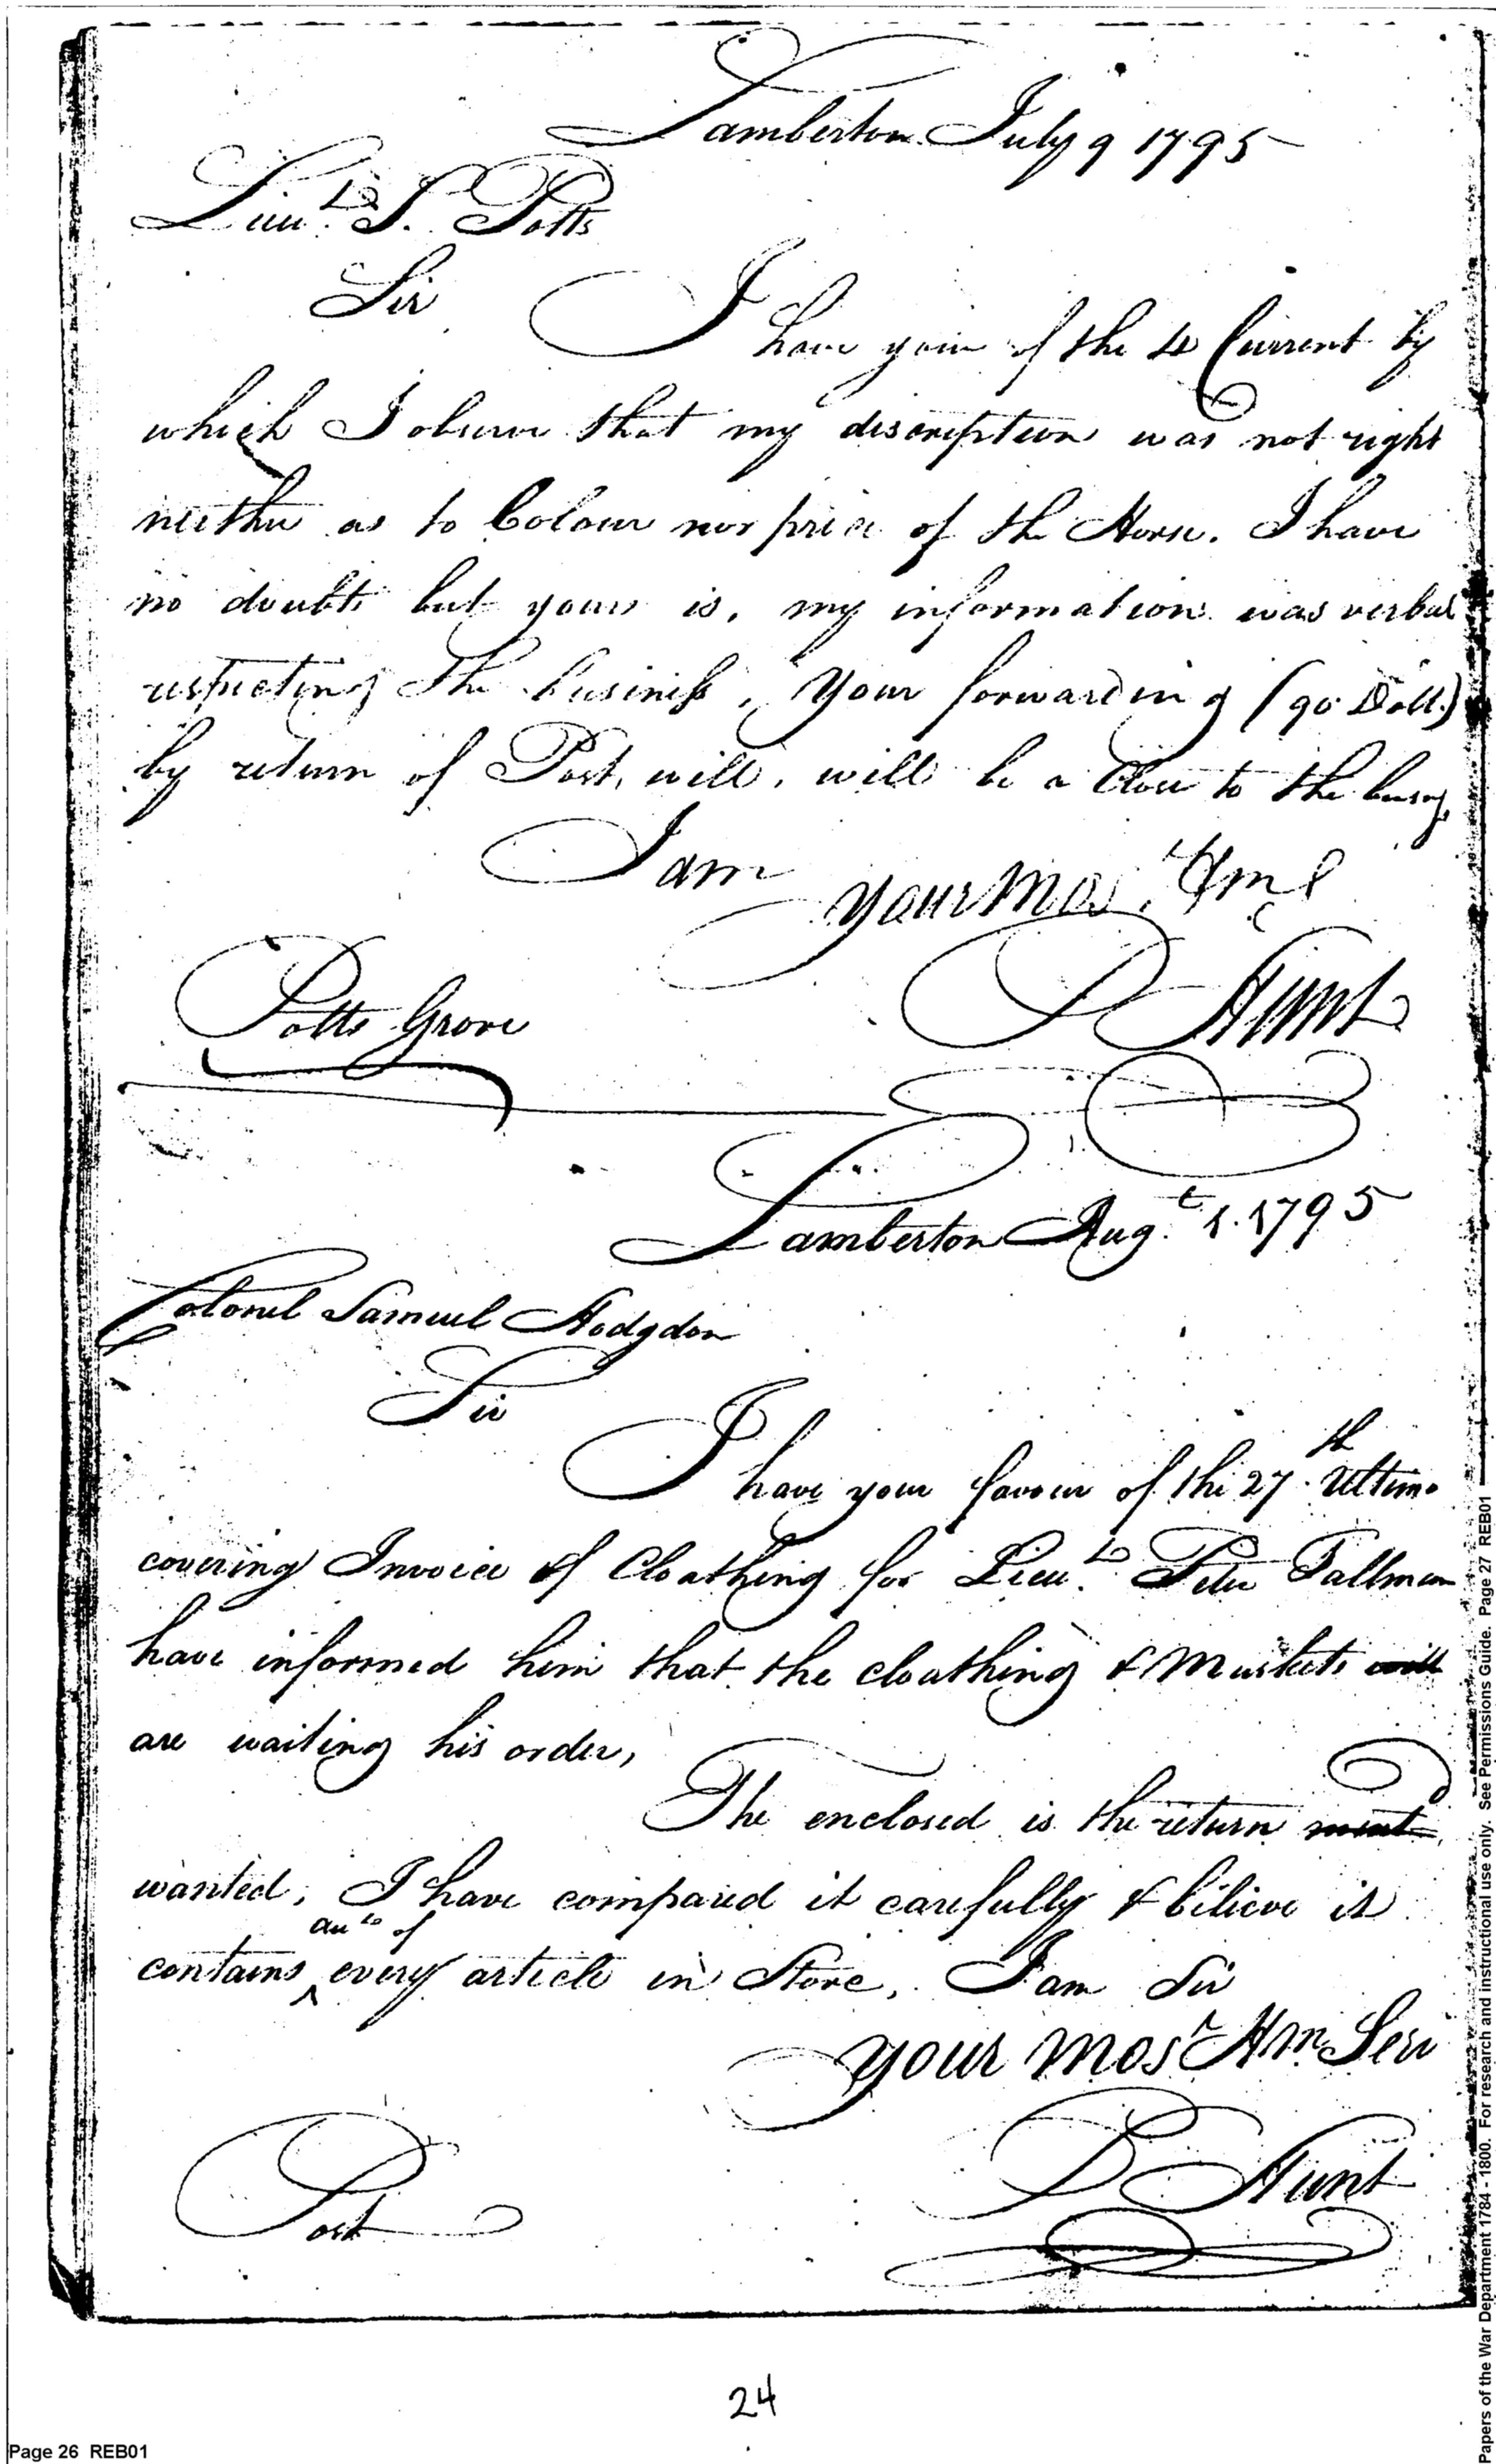 Lamberton July 9 1795
Lieut. S. Potts
Sir
I have your of the 4 Current by
which I observe that my discription was not right
neither as to Colour nor price of the Horse. I have
no doubt but yours is, my information was verbal
respecting the business, your forwarding (90 Doll.)
by return of Post, will, will be a Close to the busns,
I am
your Most. Hml
P Hunt
Potts Grove
Lamberton Augt. 1. 1795
Colonel Samuel Hodgdon
Sir
I have your favour of the 27th. Ultimo
covering Invoice of Cloathing for Lieut. Peter Tallman
have informed him that the cloathing & Muskets will
are waiting his order,
The enclosed is the return
wanted, I have compared it carefully & believe it
aut of
contains ^ every article in Store, I am Sir
your most Hm Serv
P Hunt
Post
24
Page 26 REB01
Papers of the War Department 1784 - 1800. For research and instructional use only. See Permissions Guide. Page 27 REB01